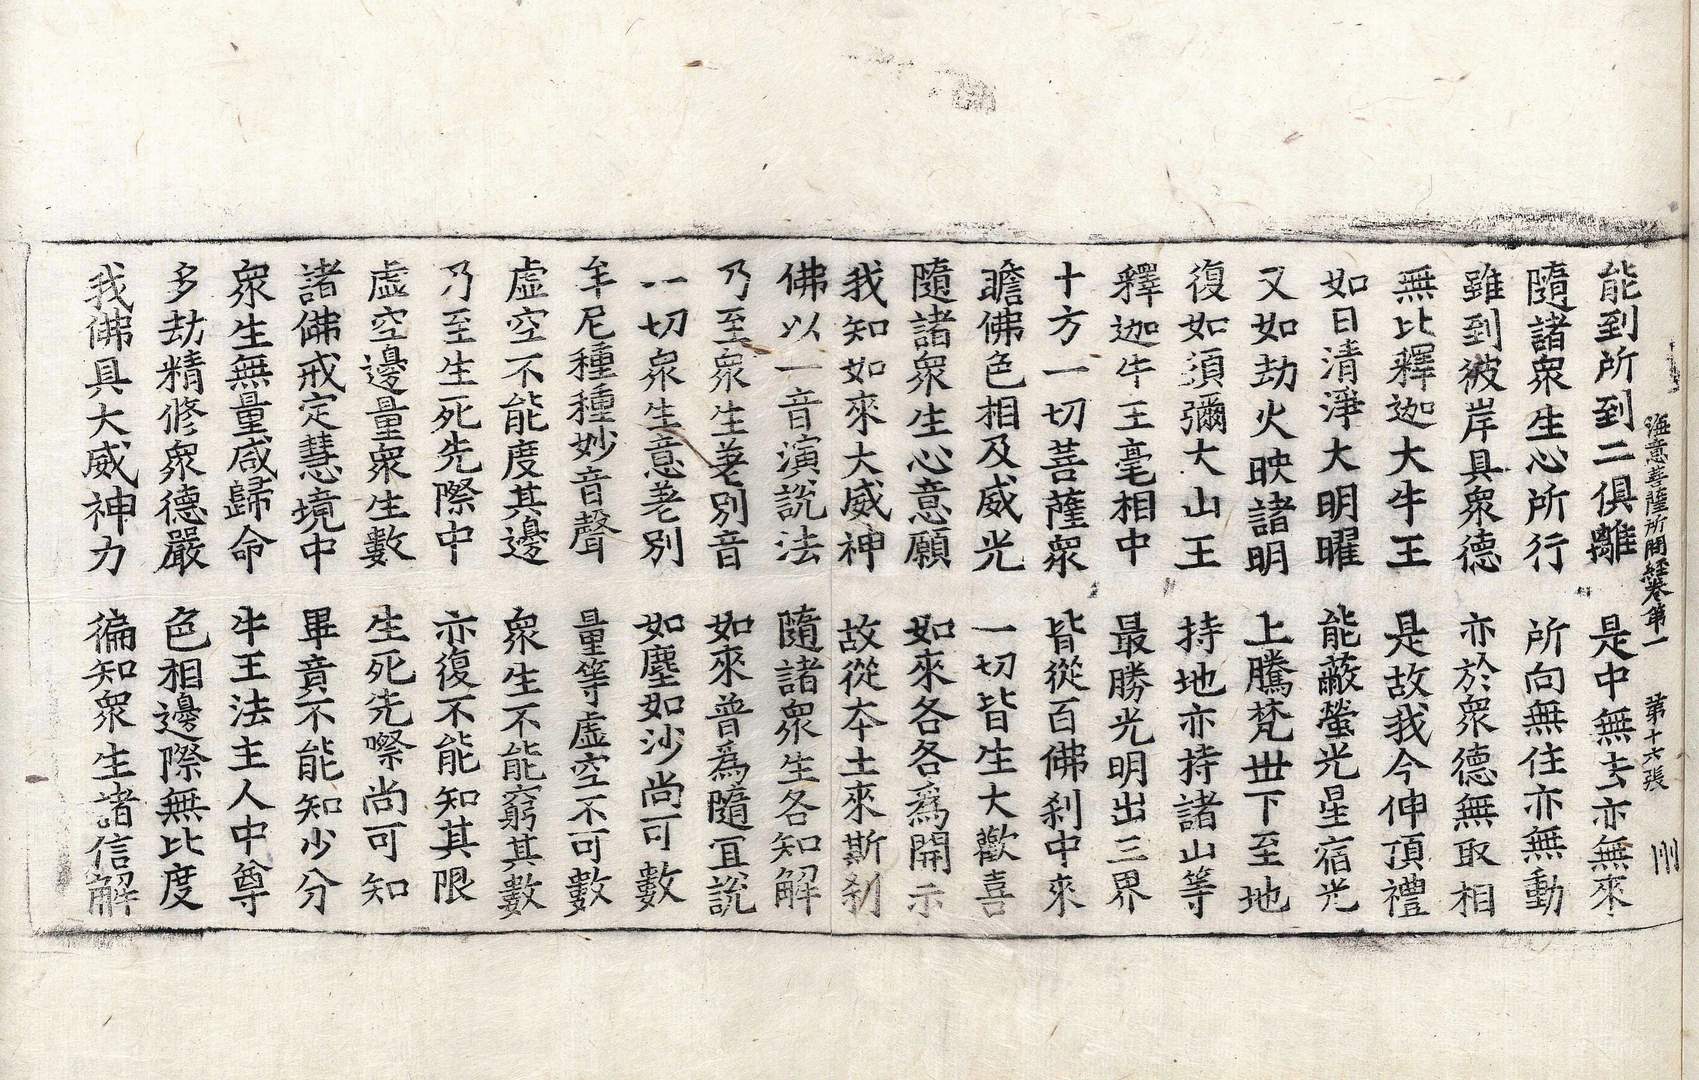 海意菩薩所問經卷第一 第十六張 𠛬
能到所到二俱離 是中無去亦無來
隨諸衆生心所行 所向無住亦無動
雖到彼岸具衆德 亦於衆德無取相
無比釋迦大牛王 是故我今伸頂禮
如日清淨大明曜 能蔽螢光星宿光
又如劫火映諸明 上騰梵世下至地
復如須彌大山王 持地亦持諸山等
釋迦牛王毫相中 最勝光明出三界
十方一切菩薩衆 皆從百佛刹中來
瞻佛色相及威光 一切皆生大歡喜
隨諸衆生心意願 如來各各爲開示
我知如來大威神 故從本土來斯刹
佛以一音演說法 隨諸衆生各知解
乃至衆生差別音 如來普爲隨冝說
一切衆生意差別 如塵如沙尚可數
牟尼種種妙音聲 量等虛空不可數
虛空不能度其邊 衆生不能窮其數
乃至生死先際中 亦復不能知其限
虛空邊量衆生數 生死先際尚可知
諸佛戒定慧境中 畢竟不能知少分
衆生無量咸歸命 牛王法主人中尊
多劫精修衆德嚴 色相邊際無比度
我佛具大威神力 徧知衆生諸信解